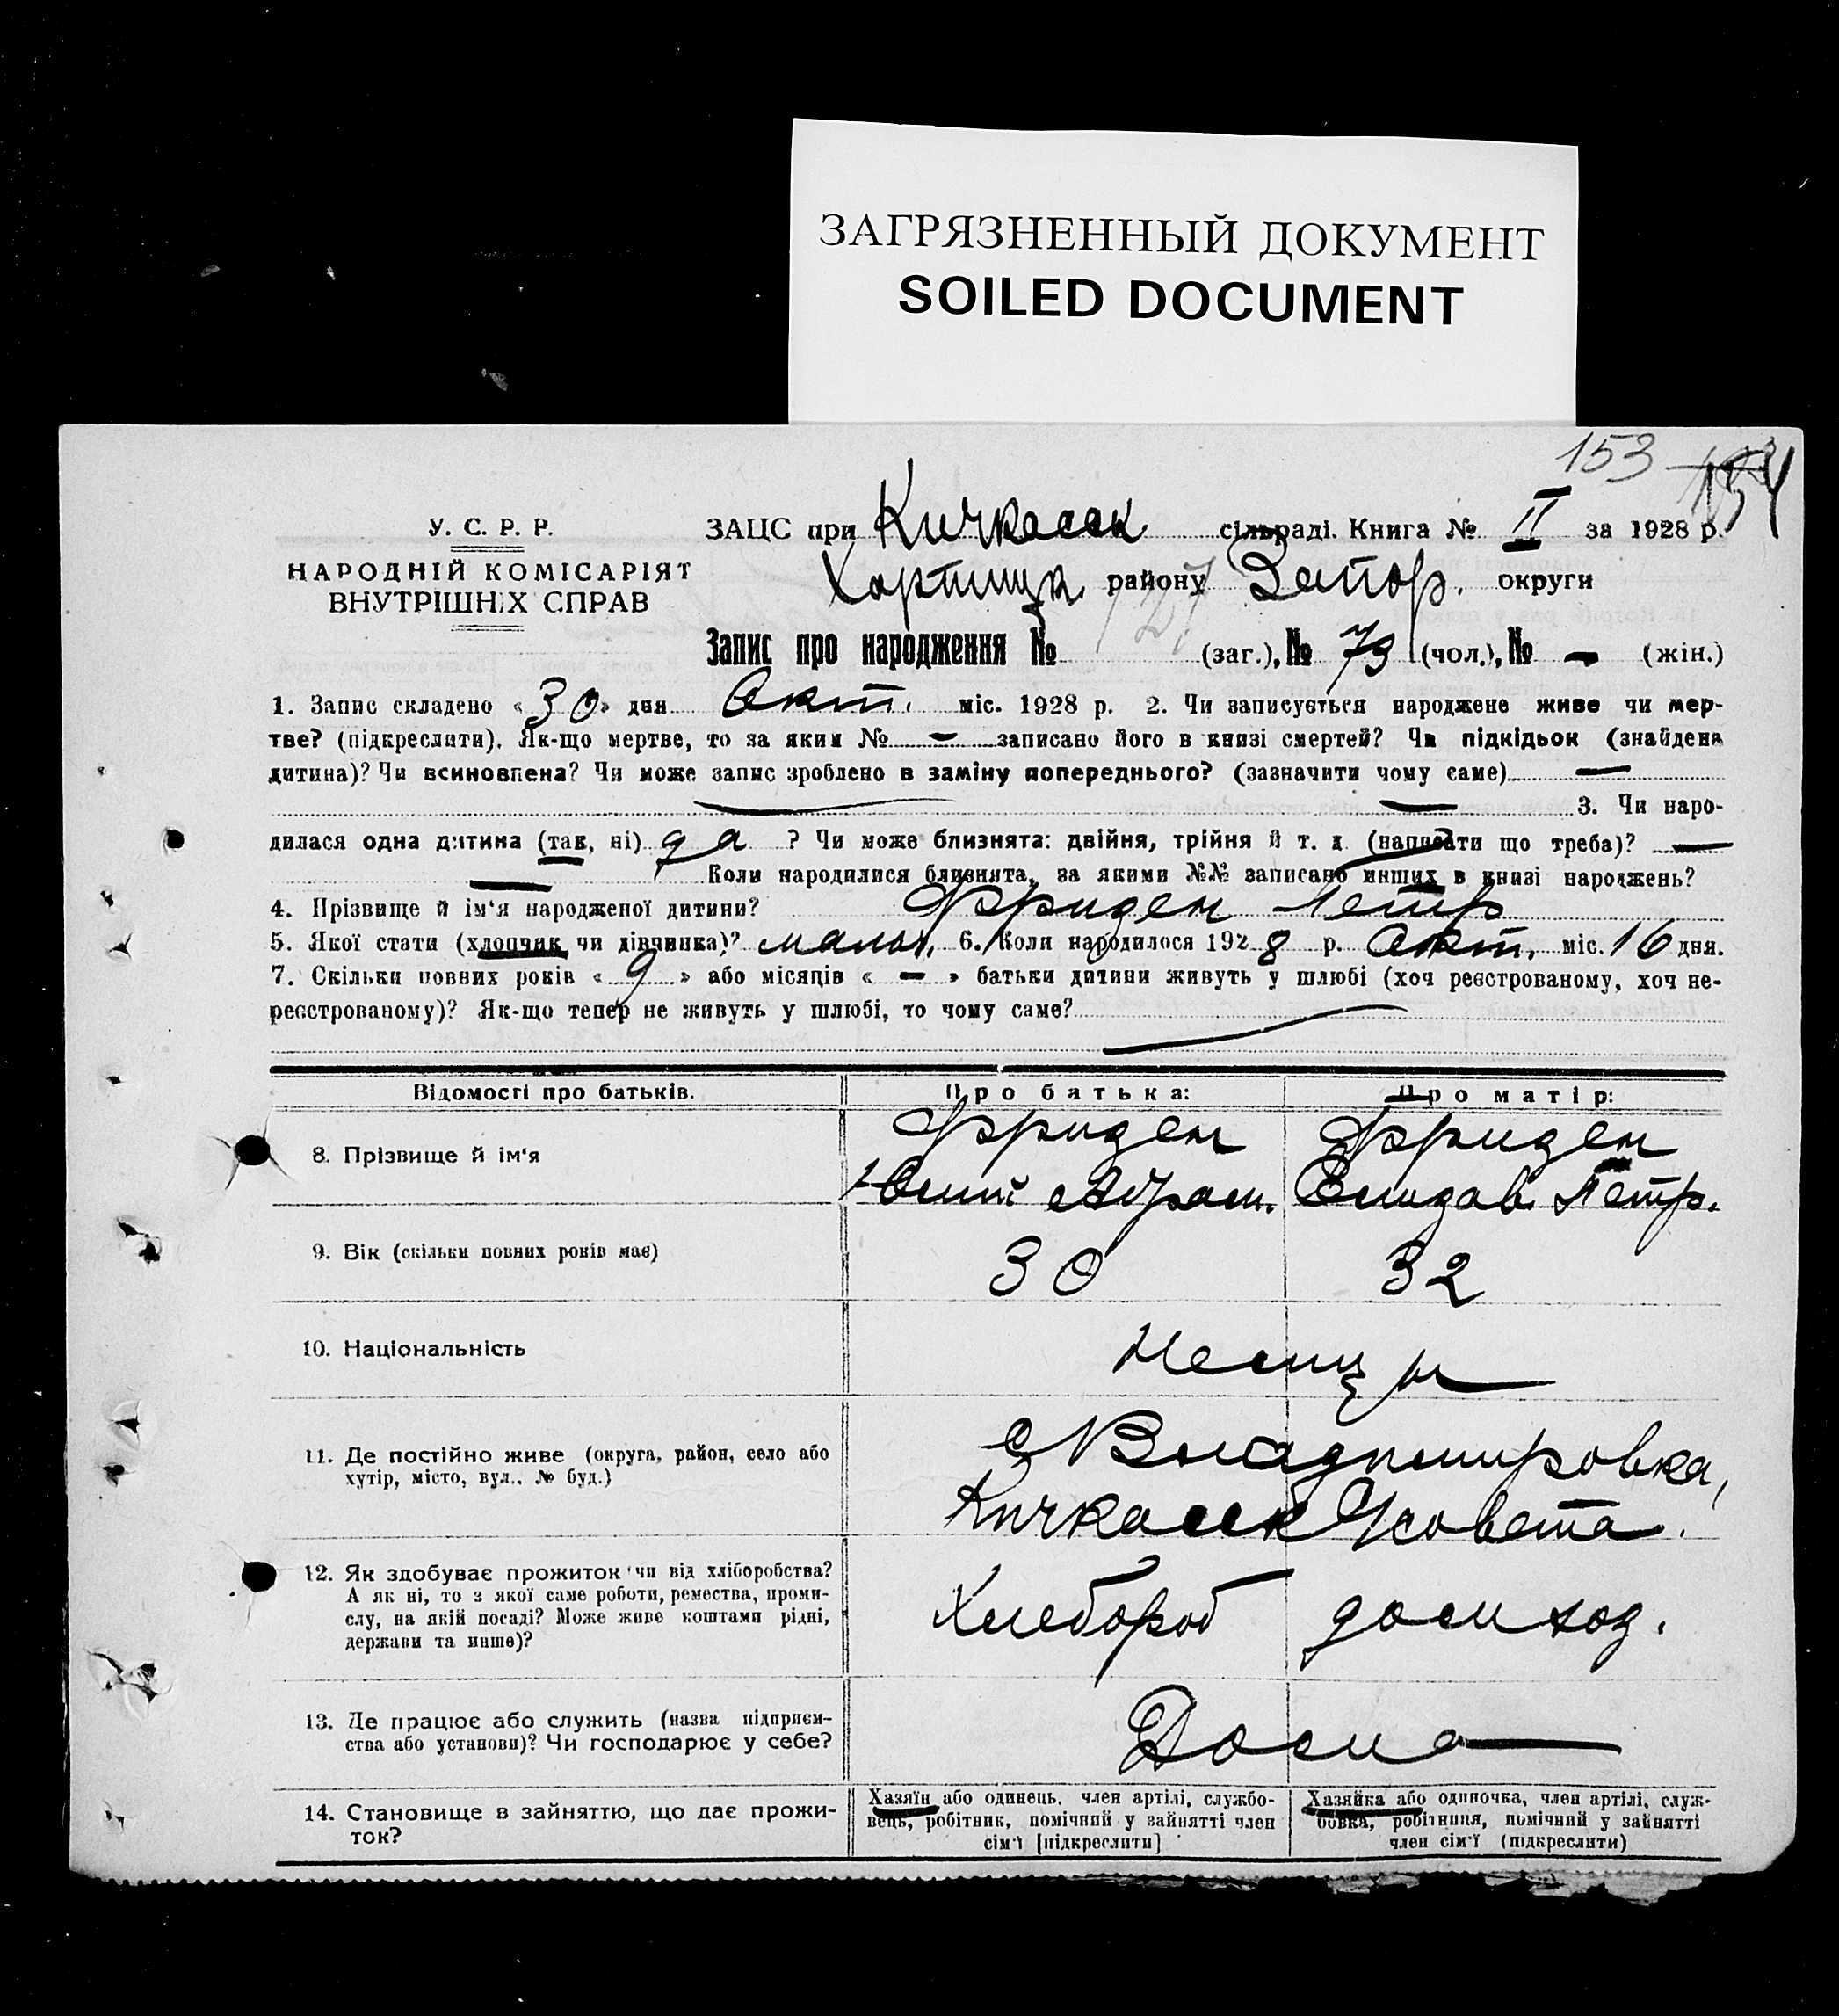 ЗАГРЯЗНЕННЫЙ ДОКУМЕНТ
SOILED DOCUMENT
153 154
У. С. Р. Р.
НАРОДНІЙ КОМІСАРІЯТ
ВНУТРІШНІХ СПРАВ
ЗАЦС при Кичкасск сільраді. Книга № II за 1928 р.
Хортицк району Запор. округи
Запис про народження № 127 (заг.), № 73 (чол.), № — (жін.)
1. Запис складено «30» дня Окт. міс. 1928 р. 2. Чи записується народжене живе чи мер-
тве? (підкреслити). Як-що мертве, то за яким № — записано його в книзі смертей? Чи підкідьок (знайдена
дитина)? Чи всиновлена? Чи може запис зроблено в заміну попереднього? (зазначити чому саме) —
— — 3. Чи наро-
дилася одна дитина (так, ні) да ? Чи може близнята: двійня, трійня й т. д. (написати що треба)? —
— Коли народилися близнята, за якими №№ записано инших в книзі народжень?
4. Прізвище й ім'я народженої дитини? Фризен Петр
5. Якої стати (хлопчик чи дівчинка)? мальч. 6. Коли народилося 1928 р. Окт. міс. 16 дня.
7. Скільки повних років «9» або місяців «—» батьки дитини живуть у шлюбі (хоч реєстрованому, хоч не-
реєстрованому)? Як-що тепер не живуть у шлюбі, то чому саме?
Відомості про батьків. Про батька: Про матір:
8. Прізвище й ім'я
Фризен Фризен
Абрам. Елизав. Петр.
9. Вік (скільки повних років має) 30 32
10. Національність Немцы
11. Де постійно живе (округа, район, село або
хутір, місто, вул., № буд.)
с Владимировка,
Кичкасск с/совета.
12. Як здобуває прожиток чи від хліборобства?
А як ні, то з якої саме роботи, ремества, проми-
слу, на якій посаді? Може живе коштами рідні,
держави та инше)?
Хлебороб домхоз.
13. Де працює або служить (назва підприєм-
ства або установи)? Чи господарює у себе?
Дома
14. Становище в зайняттю, що дає прожи-
ток?
Хазяїн або одинець, член артілі, службо-
вець, робітник, помічний у зайнятті член
сім'ї [підкреслити]
Хазяйка або одиночка, член артілі, служ-
бовка, робітниця, помічний у зайнятті
член сім'ї (підкреслити)